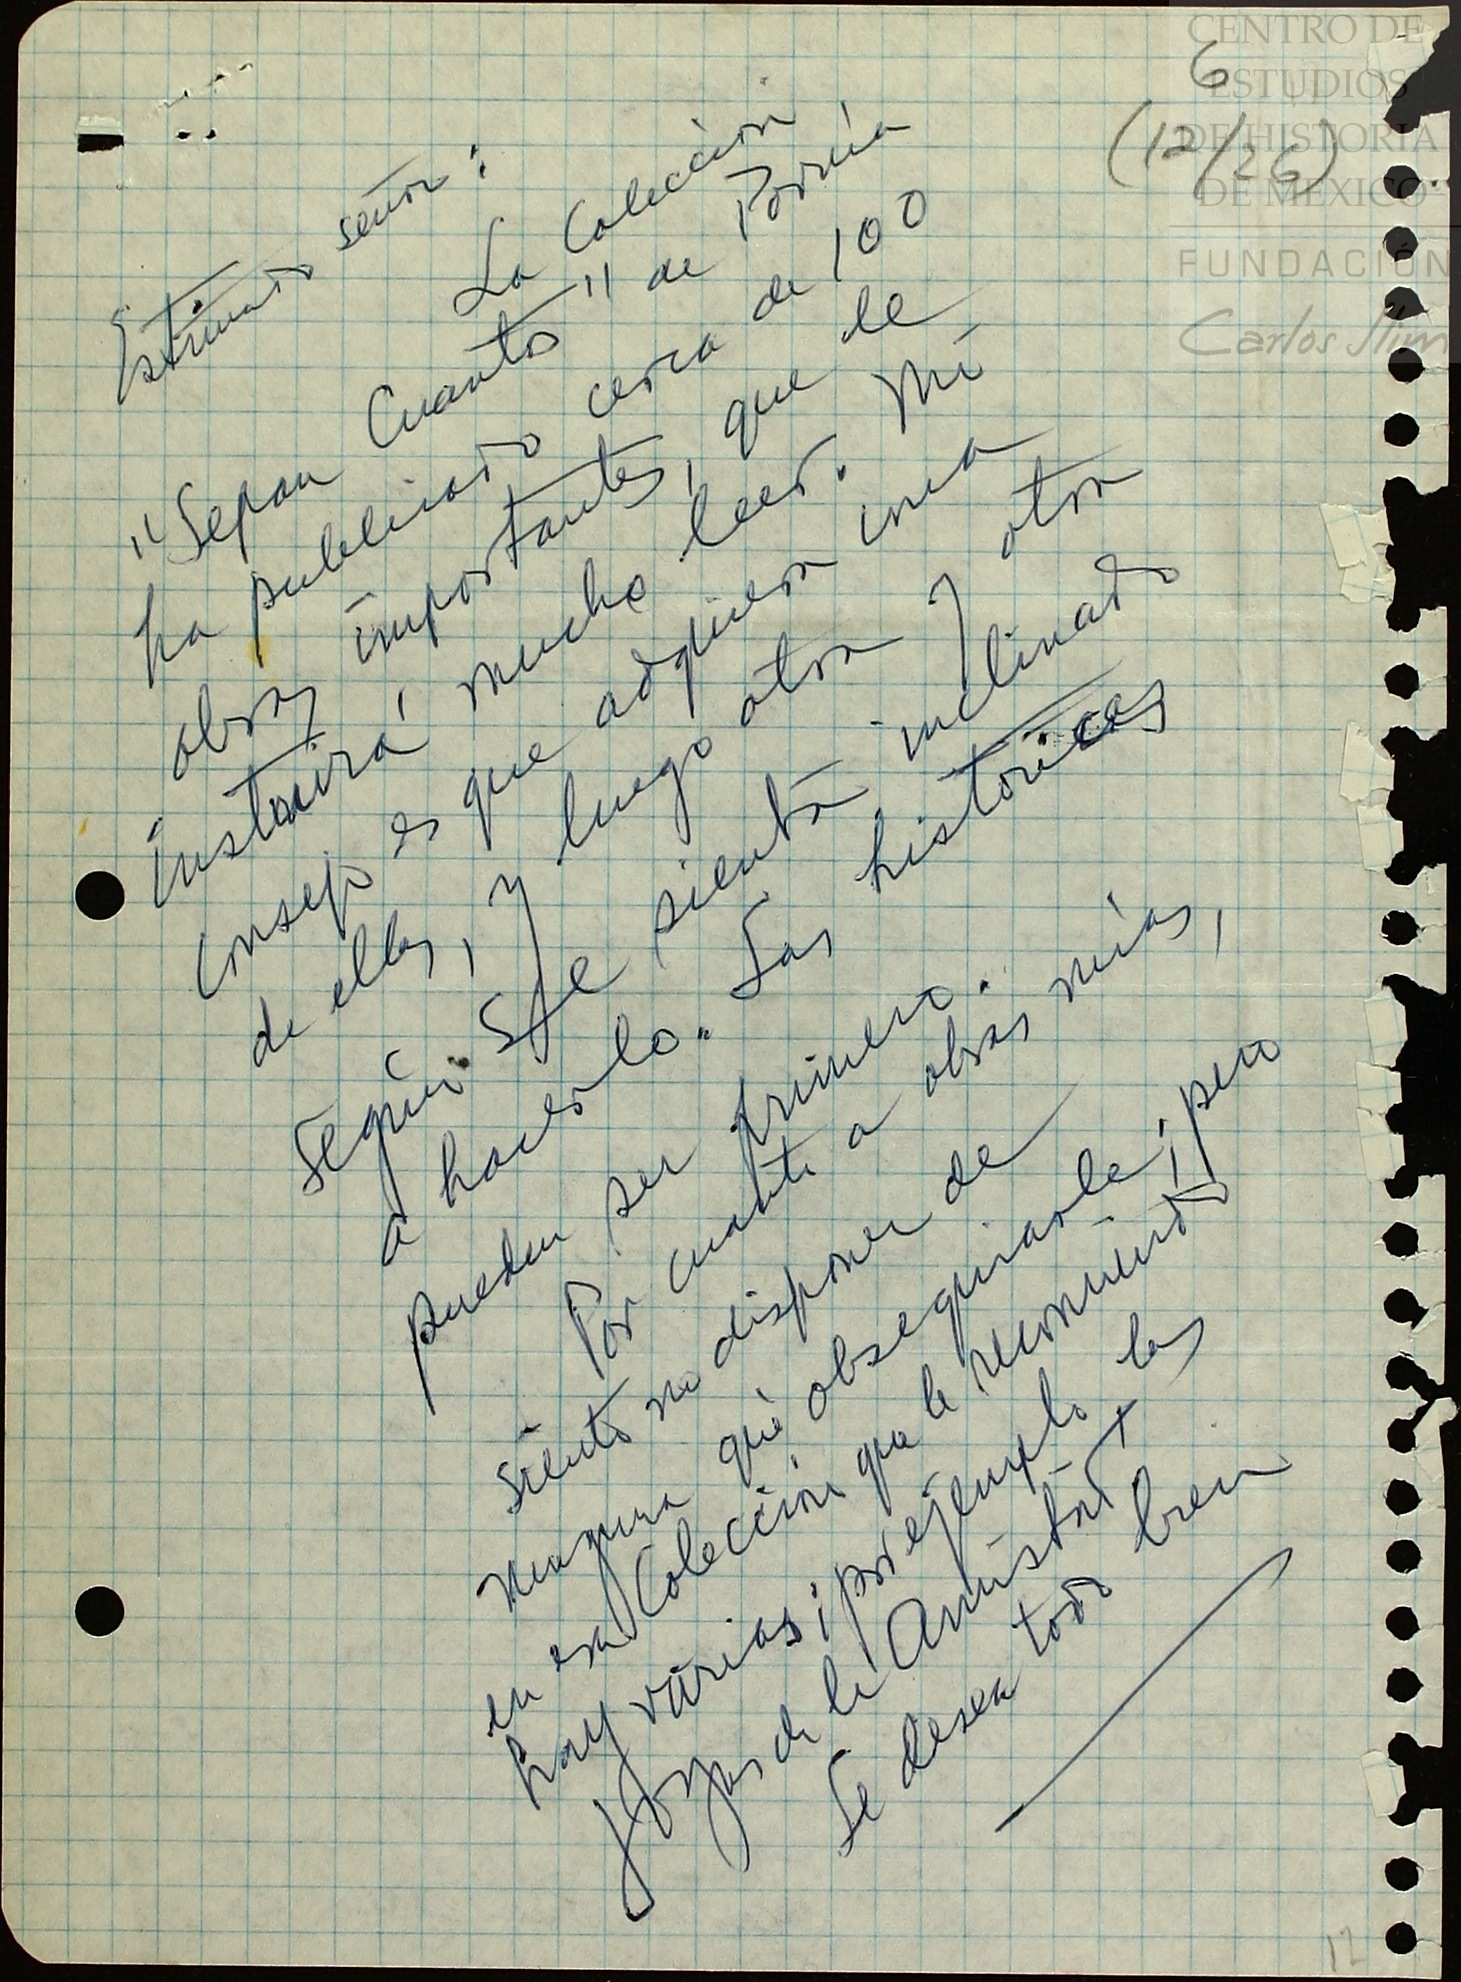 CENTRO DE
ESTUDIOS
DE HISTORIA
DE MEXICO
FUNDACIÓN
Carlos Slim
6
(12/26)
Estimado señor:
La Colección
"Sepan Cuantos" de Porrúa
ha publicado cerca de 100
obras importantes, que le
instruirá mucho leer. Mi
consejo es que adquiera una
de ellas, y luego otra y otra
según se sienta inclinado
a hacerlo. Las históricas
pueden ser primero.
Por cuanto a obras mías,
siento no disponer de
ninguna qué obsequiarle; pero
en esa Colección que le recomiendo
hay varias; por ejemplo las
Joyas de la Amistad
Le desea todo bien
12